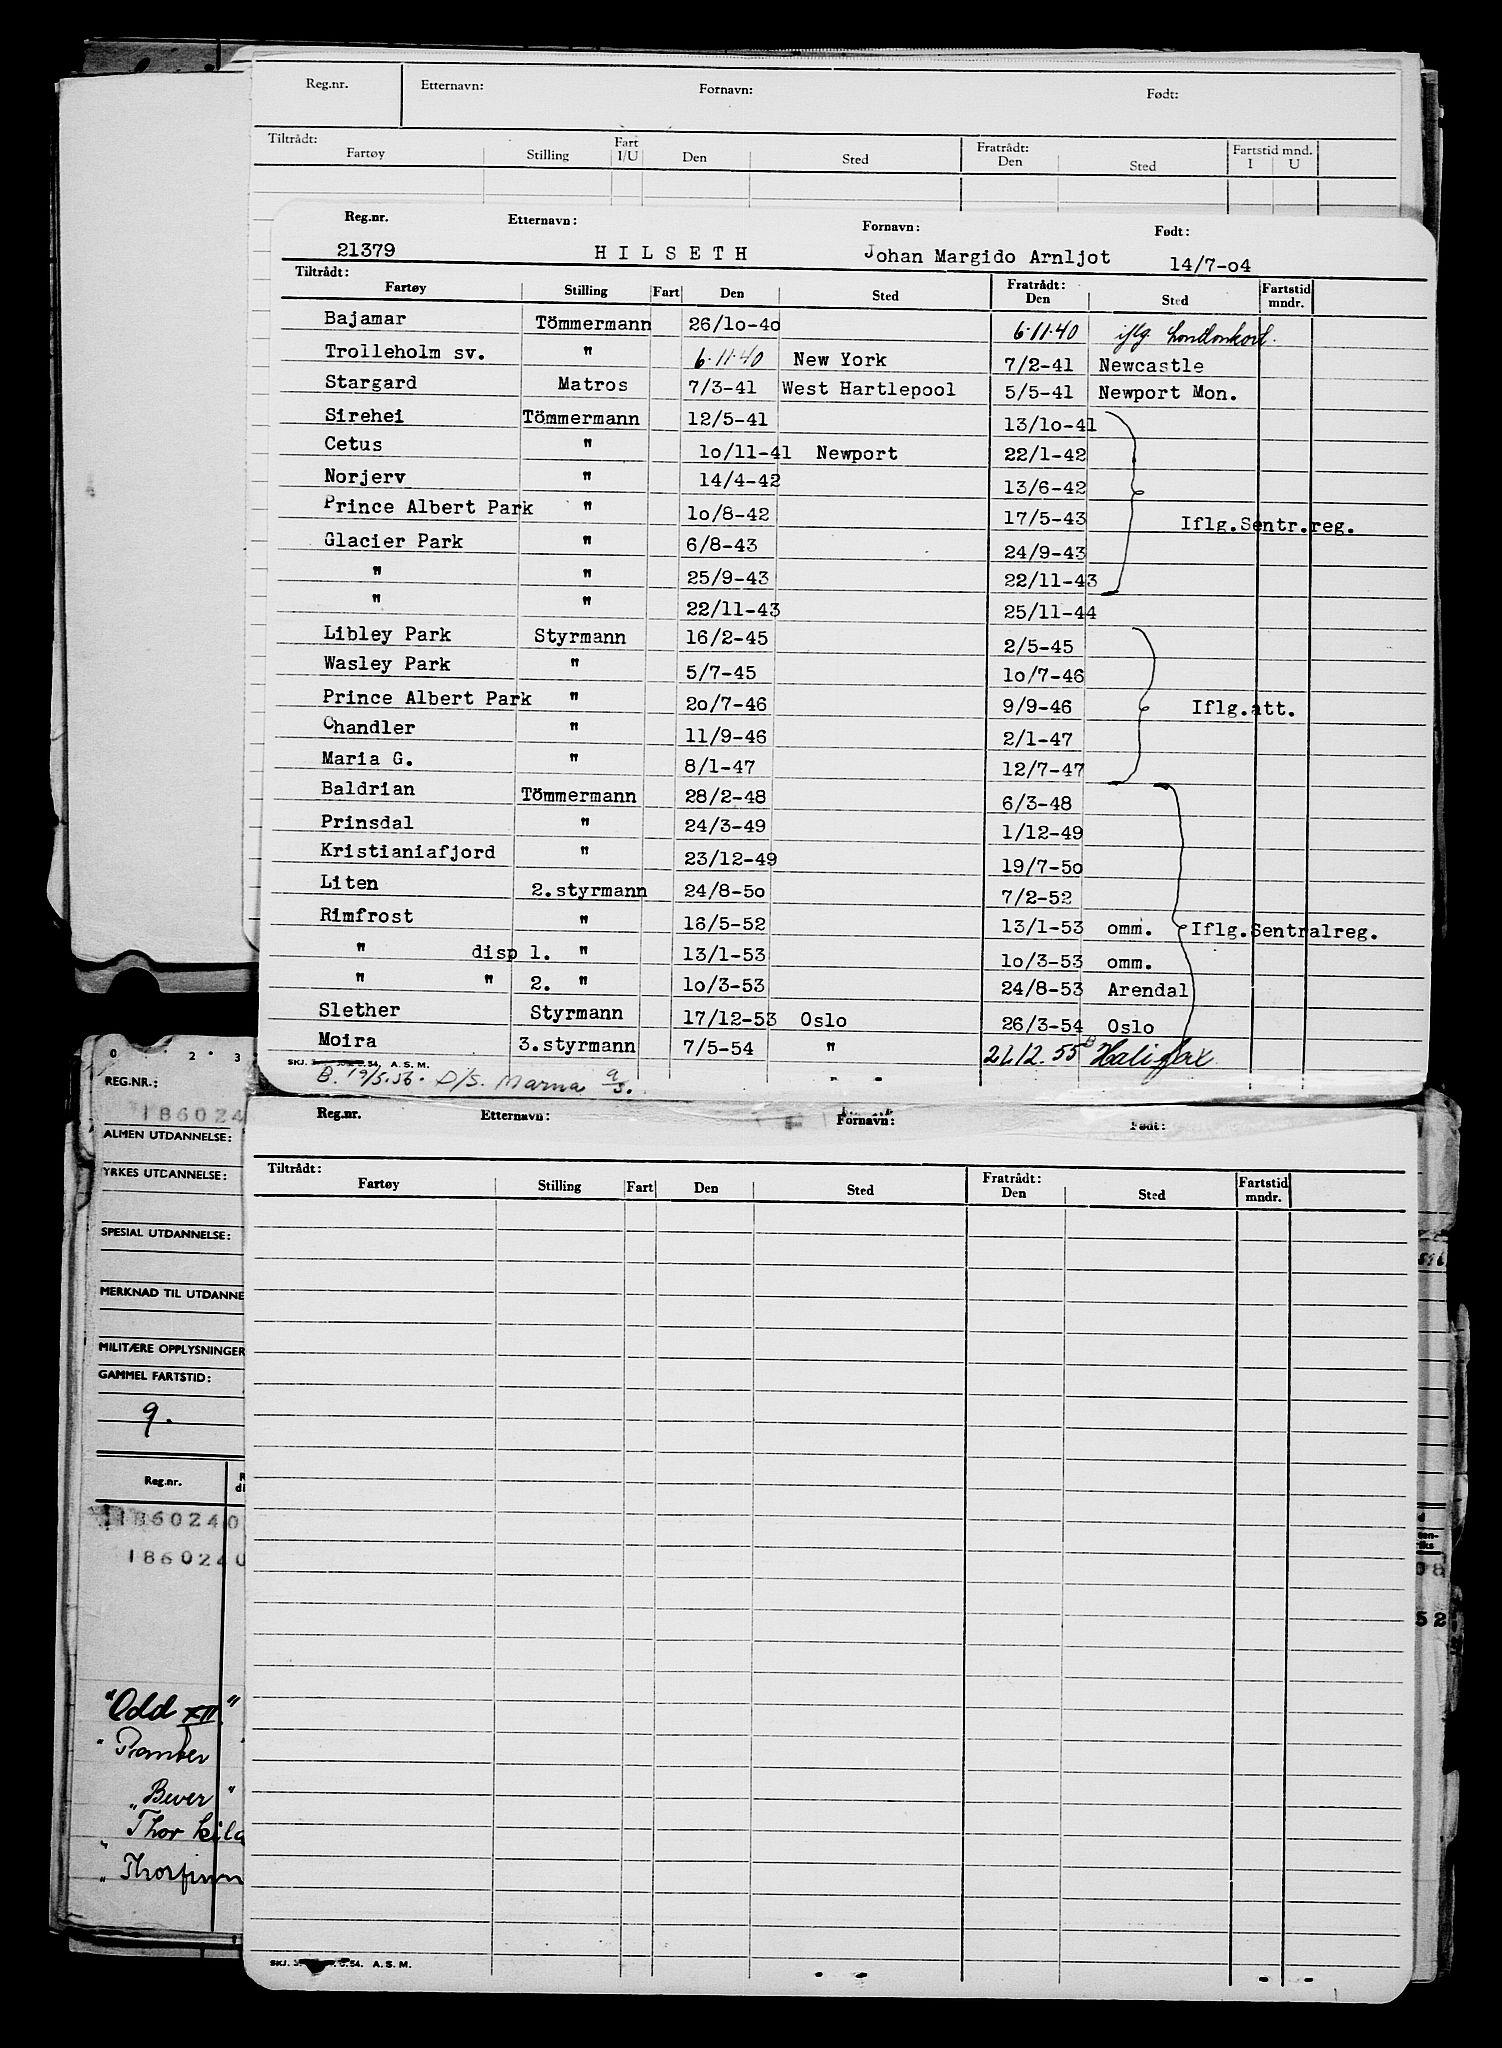 Reg.nr. Etternavn: Fornavn: Født:
Tiltrådt: Fartøy Stilling Fart I/U Den Sted Fratrådt: Den Sted Fartstid mnd. I U
Reg.nr. Etternavn: Fornavn: Født:
21379 HILSETH Johan Margido Arnljot 14/7-04
Tiltrådt: Fartøy Stilling Fart Den Sted Fratrådt: Den Sted Fartstid mndr.
Bajamar Tömmermann 26/10-40 6.11.40 iflg. Londonkort.
Trolleholm sv. " 6.11.40 New York 7/2-41 Newcastle
Stargard Matros 7/3-41 West Hartlepool 5/5-41 Newport Mon.
Sirehei Tömmermann 12/5-41 13/10-41
Cetus " 10/11-41 Newport 22/1-42
Norjerv " 14/4-42 13/6-42
Prince Albert Park " 10/8-42 17/5-43 Iflg.Sentr.reg.
Glacier Park " 6/8-43 24/9-43
" " 25/9-43 22/11-43
" " 22/11-43 25/11-44
Libley Park Styrmann 16/2-45 2/5-45
Wasley Park " 5/7-45 10/7-46
Prince Albert Park " 20/7-46 9/9-46 Iflg.att.
Chandler " 11/9-46 2/1-47
Maria G. " 8/1-47 12/7-47
Baldrian Tömmermann 28/2-48 6/3-48
Prinsdal " 24/3-49 1/12-49
Kristianiafjord " 23/12-49 19/7-50
Liten 2.styrmann 24/8-50 7/2-52
Rimfrost " 16/5-52 13/1-53 omm. Iflg.Sentralreg.
" disp 1. " 13/1-53 10/3-53 omm.
" " 2. " 10/3-53 24/8-53 Arendal
Slether Styrmann 17/12-53 Oslo 26/3-54 Oslo
Moira 3.styrmann 7/5-54 " 21.12.55 Halifax
SKJ. 54. A.S.M.
B. 19/5.56. D/S. Marna 9/3.
0 2 3
REG.NR.:
186024
ALMEN UTDANNELSE:
YRKES UTDANNELSE:
SPESIAL UTDANNELSE:
MERKNAD TIL UTDANNE
MILITÆRE OPPLYSNINGER
GAMMEL FARTSTID:
9.
Reg.nr.
1860240
1860240
"Odd XII"
"Bever"
"Thor
"Thorfinn
Reg.nr. Etternavn: Fornavn: Født:
Tiltrådt: Fartøy Stilling Fart Den Sted Fratrådt: Den Sted Fartstid mndr.
08
52
SKJ. 54. A.S.M.